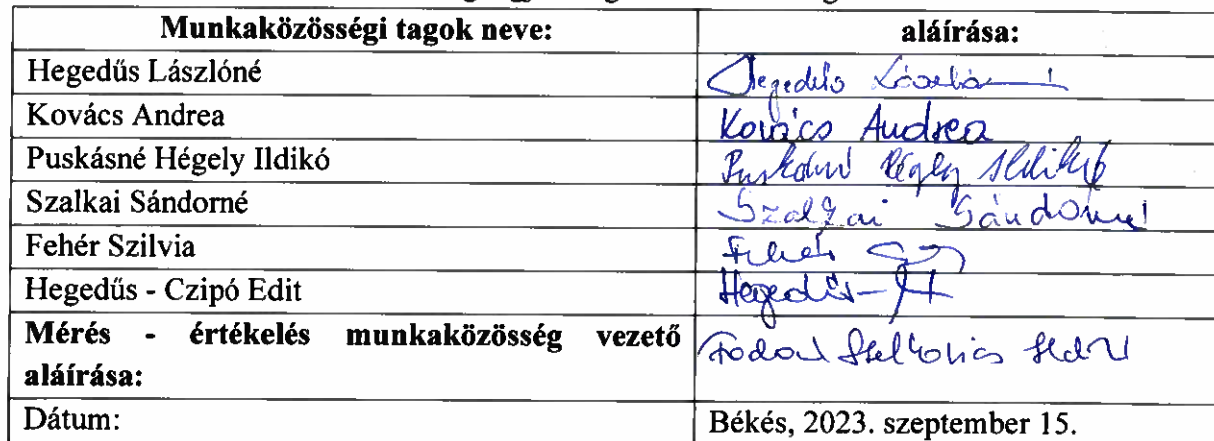 Munkaközösségi tagok neve: aláírása:
Hegedűs Lászlóné Hegedűs Lászlóné
Kovács Andrea Kovács Andrea
Puskásné Hégely Ildikó Puskásné Hégely Ildikó
Szalkai Sándorné Szalkai Sándorné
Fehér Szilvia Fehér
Hegedűs - Czipó Edit Hegedűs-
Mérés - értékelés munkaközösség vezető
aláírása:
Dátum: Békés, 2023. szeptember 15.